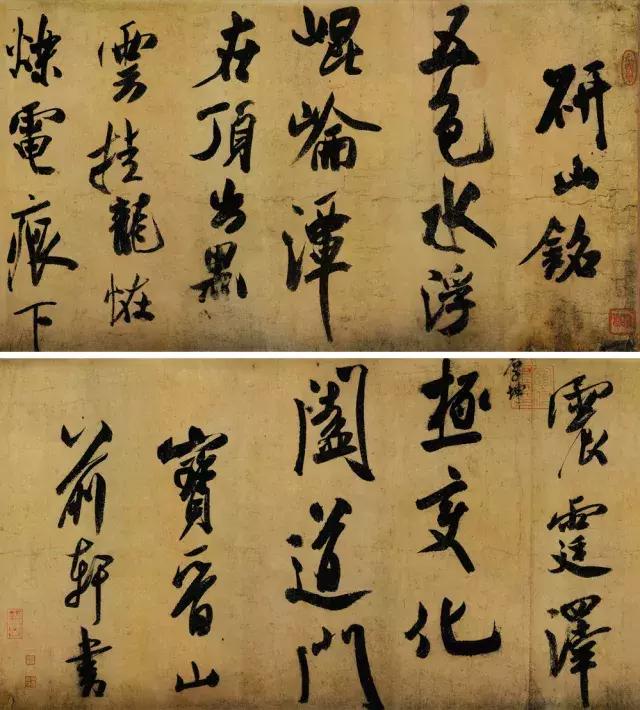 研山銘
五色水浮
崐崘潭
在頂出黑
雲挂龍恠
爍電痕下
震霆澤
極变化
闔道門
寶晉山
前軒書